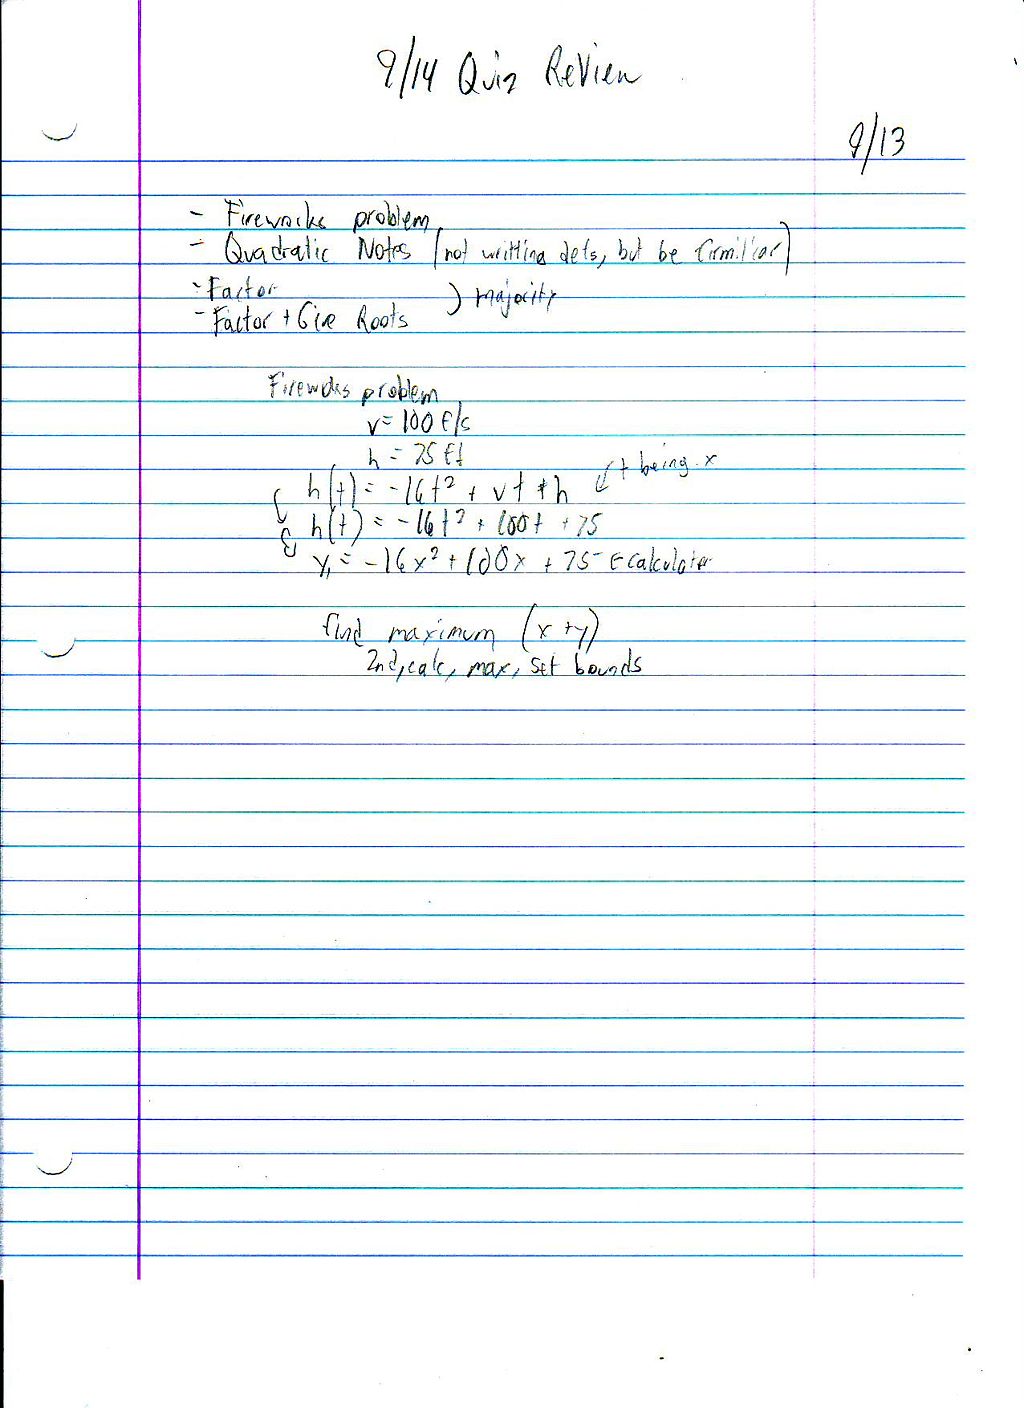 9/14 Quiz Review
9/13
- Fireworks problem
- Quadratic Notes (not writting defs, but be firmiliar)
- Factor
) majority
- Factor + Give Roots
Fireworks problem
v = 100 f/s
h = 75 ft
t being x
h(t) = -16t² + vt + h
h(t) = -16t² + 100t + 75
y₁ = -16x² + 100x + 75 ← calculater
find maximum (x + y)
2nd, calc, max, set bounds